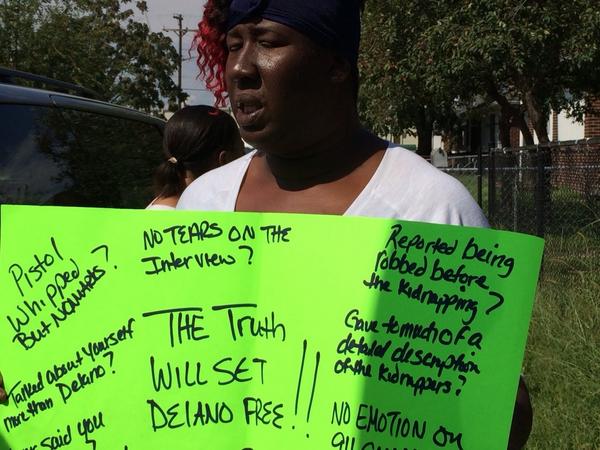 Pistol
Whipped
But No Marks?
Talked about Yourself
more than Delano?
said you
NO TEARS ON THE
Interview?
THE Truth
WILL SET
DELANO FREE!!
Reported being
robbed before
the kidnapping?
Gave to much of a
detailed description
of the kidnappers?
NO EMOTION ON
911